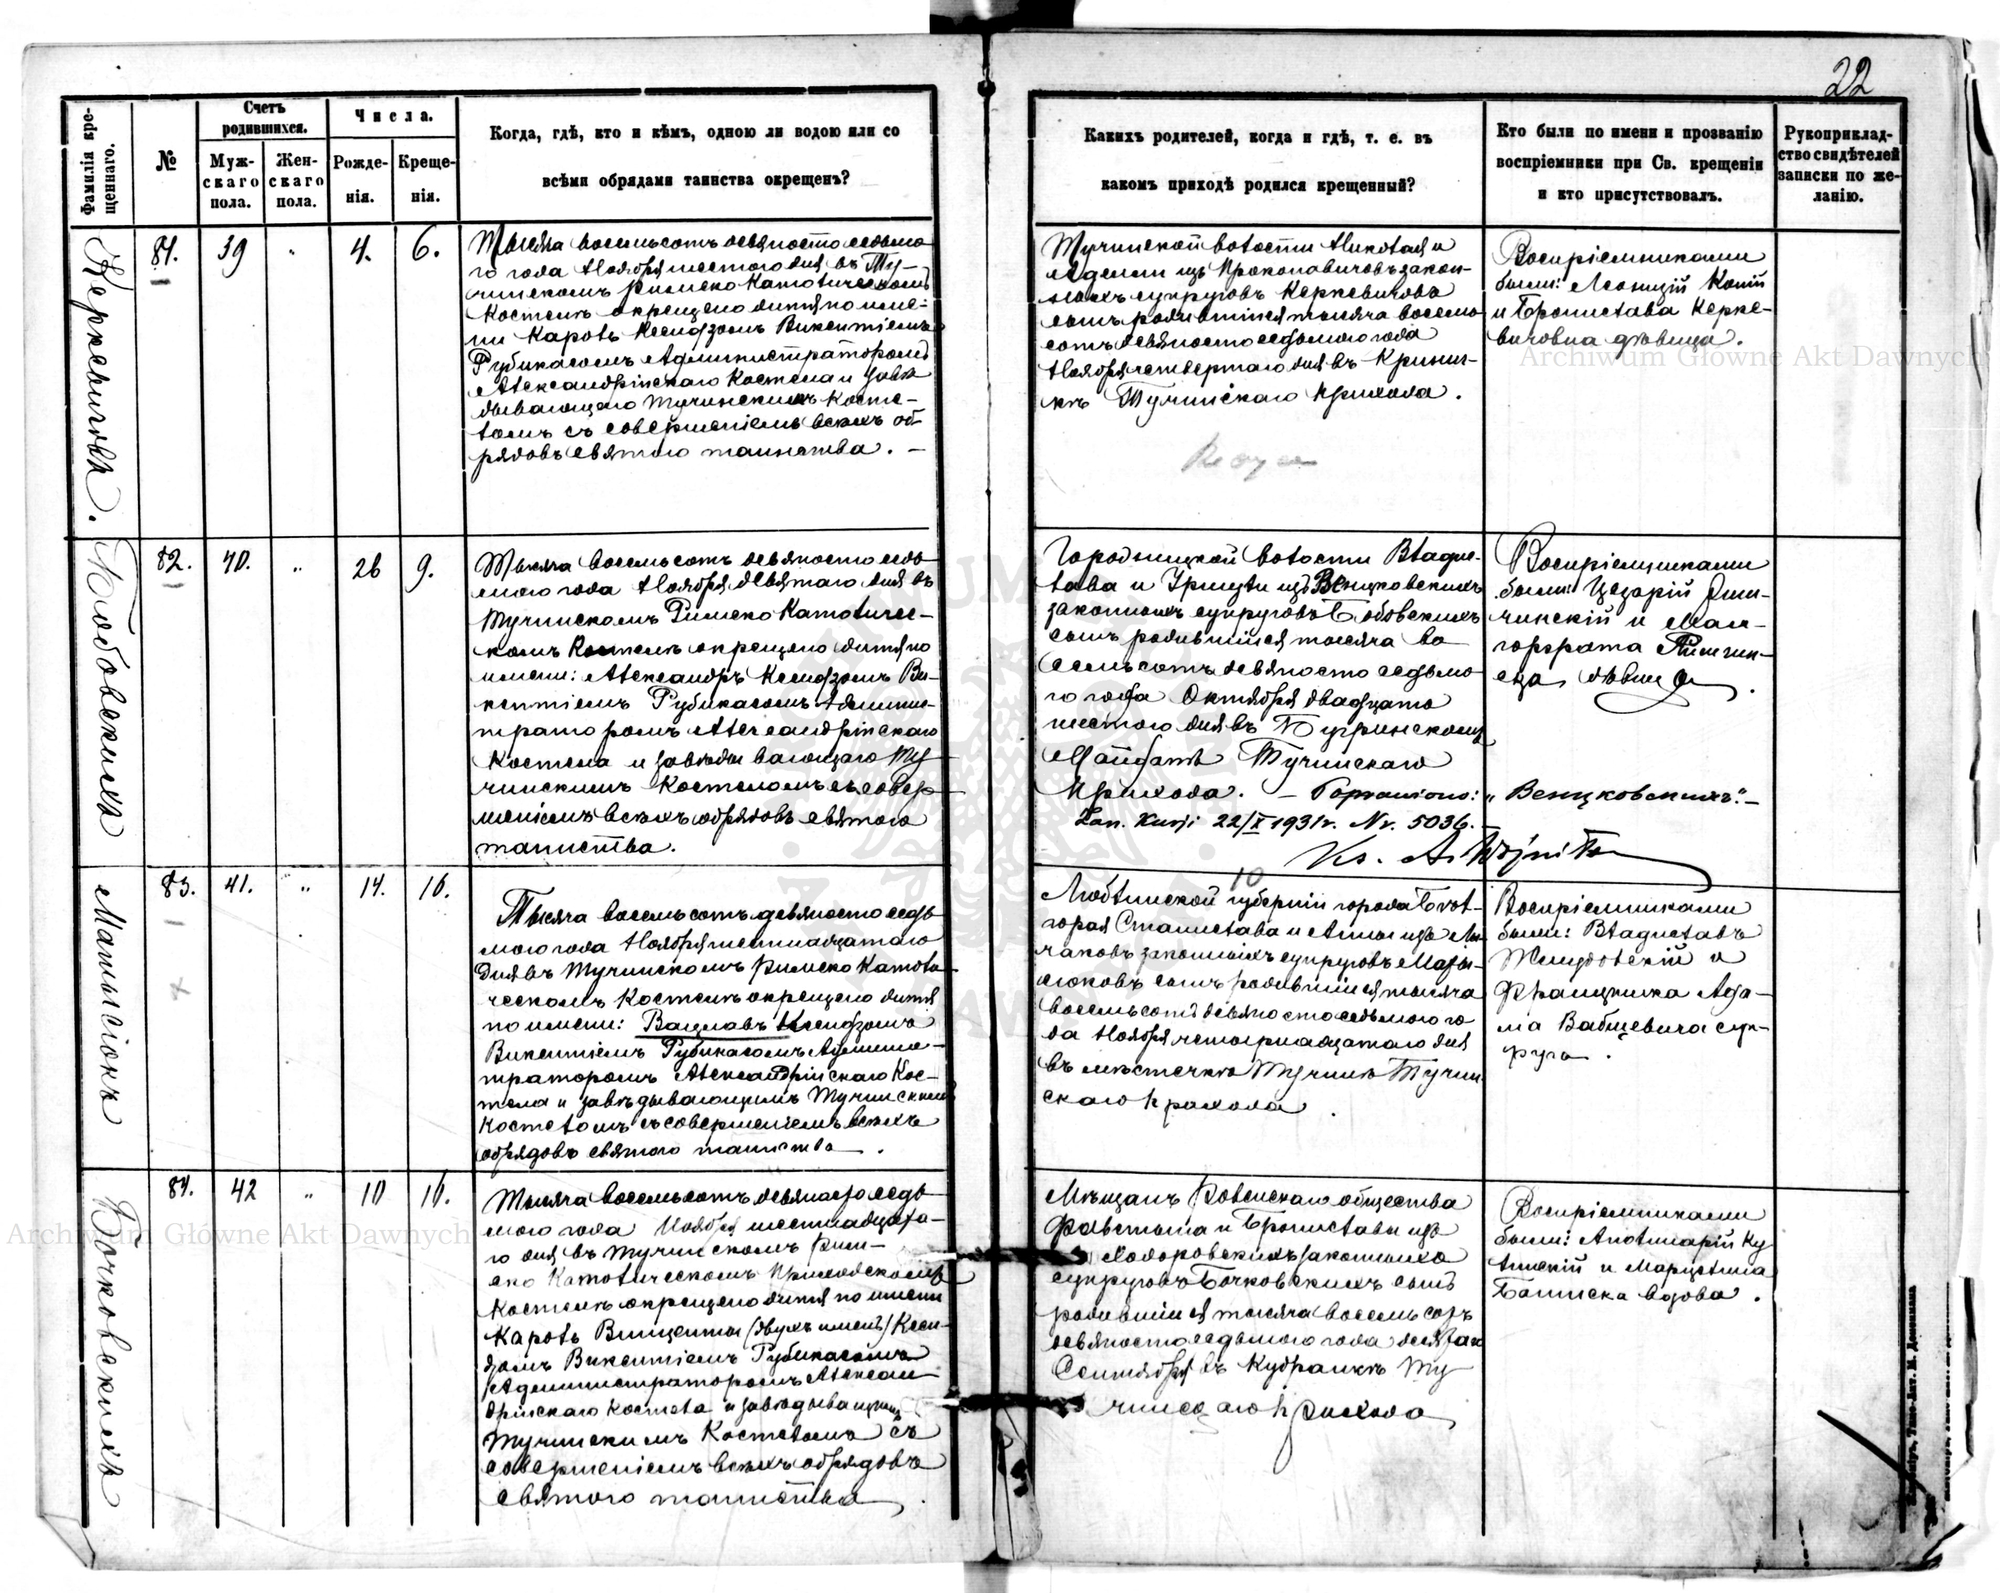 22
Фамилія кре-
щеннаго.
№
Счетъ
родившихся.
Муж-
скаго
пола.
Жен-
скаго
пола.
Числа.
Рожде-
нія.
Креще-
нія.
Когда, гдѣ, кто и кѣмъ, одною ли водою или со
всѣми обрядами таинства окрещенъ?
Какихъ родителей, когда и гдѣ, т. е. въ
какомъ приходѣ родился крещенный?
Кто были по имени и прозванію
воспріемники при Св. крещеніи
и кто присутствовалъ.
Рукоприклад-
ство свидѣтелей
записки по же-
ланію.
Керкевичовъ.
81.
39
"
4.
6.
Тысяча восемьсотъ девяносто седьма-
го года Ноября шестого дня въ Ту-
чинскомъ Римско Католическомъ
Костелѣ окрещено дитя по име-
ни Кароль Ксендзомъ Викентіемъ
Рубикасомъ Администраторомъ
Александрійскаго Костела и завѣ
дывающаго Тучинскимъ Косте-
ломъ съ совершеніемъ всѣхъ об-
рядовъ святого таинства. —
Тучинской волости Николая и
изъ Прокоповичовъ закон-
ныхъ супруговъ Керкевичовъ
сынъ родившійся тысяча восемь
сотъ девяносто седьмого года
Ноября четвертаго дня въ Крини-
кѣ Тучинскаго Прихода.
Воспріемниками
были: Леонтій Копій
и Бронислава Керке-
вичовна дѣвица.
Бобовскихъ
82.
40.
"
26
9.
Тысяча восемьсотъ девяносто седь
мого года Ноября девятаго дня въ
Тучинскомъ Римско Католичес-
комъ Костелѣ окрещено дитя по
имени: Александръ Ксендзомъ Ви-
кентіемъ Рубикасомъ Админис-
траторомъ Александрійскаго
Костела и завѣдывающаго Ту-
чинскимъ Костеломъ съ совер-
шеніемъ всѣхъ обрядовъ святого
таинства.
Городницкой волости Владис-
лава и изъ Венцковскихъ
законныхъ супруговъ Бобовскихъ
сынъ родившійся тысяча во
семьсотъ девяносто седьмо-
го года Октября двадцать
шестого дня въ Бугринскомъ
Майданѣ Тучинскаго
Прихода. — Poprawiono: „Венцковскихъ." —
Zan. Kurji 22/X 1931 r. Nr. 5036. —
Ks. A.
Воспріемниками
были: Цезарій
чинскій и Мал-
горжата
дѣвица.
Матысіокъ
83.
41.
"
14.
16.
Тысяча восемьсотъ девяносто седь
мого года Ноября шестнадцатаго
дня въ Тучинскомъ Римско Католи-
ческомъ Костелѣ окрещено дитя
по имени: Вацлавъ Ксендзомъ
Викентіемъ Рубикасомъ Админис-
траторомъ Александрійскаго Кос-
тела и завѣдывающимъ Тучинскимъ
Костеломъ съ совершеніемъ всѣхъ
обрядовъ святого таинства.
10
Люблинской губерніи города
Станислава и Анны изъ
законныхъ супруговъ
сынъ родившійся тысяча
восемьсотъ девяносто седьмого го-
да Ноября четырнадцатаго дня
въ мѣстечкѣ Тучинѣ Тучин
скаго Прихода.
Воспріемниками
были: Владиславъ
и
Францишка Ада-
ма Вабщевича суп-
руга.
Бочковскихъ
84.
42
"
10
16.
Тысяча восемьсотъ девяносто седь-
мого года Ноября шестнадцата-
го дня въ Тучинскомъ Рим-
ско Католическомъ Приходскомъ
Костелѣ окрещено дитя по имени
Кароль Винцентъ (двухъ именъ) Ксен-
дзомъ Викентіемъ Рубикасомъ
Администраторомъ Алексан-
дрійскаго Костела и завѣдывающимъ
Тучинскимъ Костеломъ съ
совершеніемъ всѣхъ обрядовъ
святого таинства.
Мѣщанъ Ровенскаго общества
и Брониславы изъ
Ходоровскихъ законныхъ
супруговъ Бочковскихъ сынъ
родившійся тысяча восемь сотъ
девяносто седьмого года десятаго
Сентября въ Кудранкѣ Ту
чинскаго Прихода
Воспріемниками
были: Аполинарій Ку
линскій и Марцелина
вдова.
Archiwum Główne Akt Dawnych
Archiwum Główne Akt Dawnych